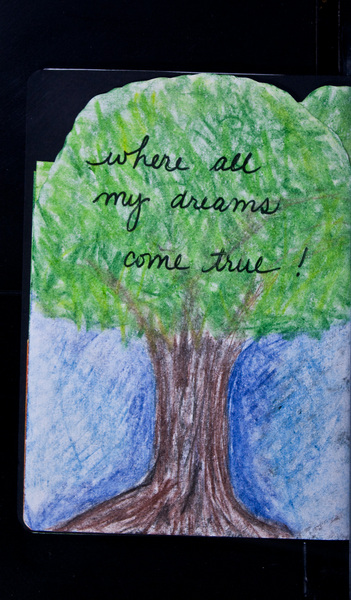 where all
my dreams
come true !